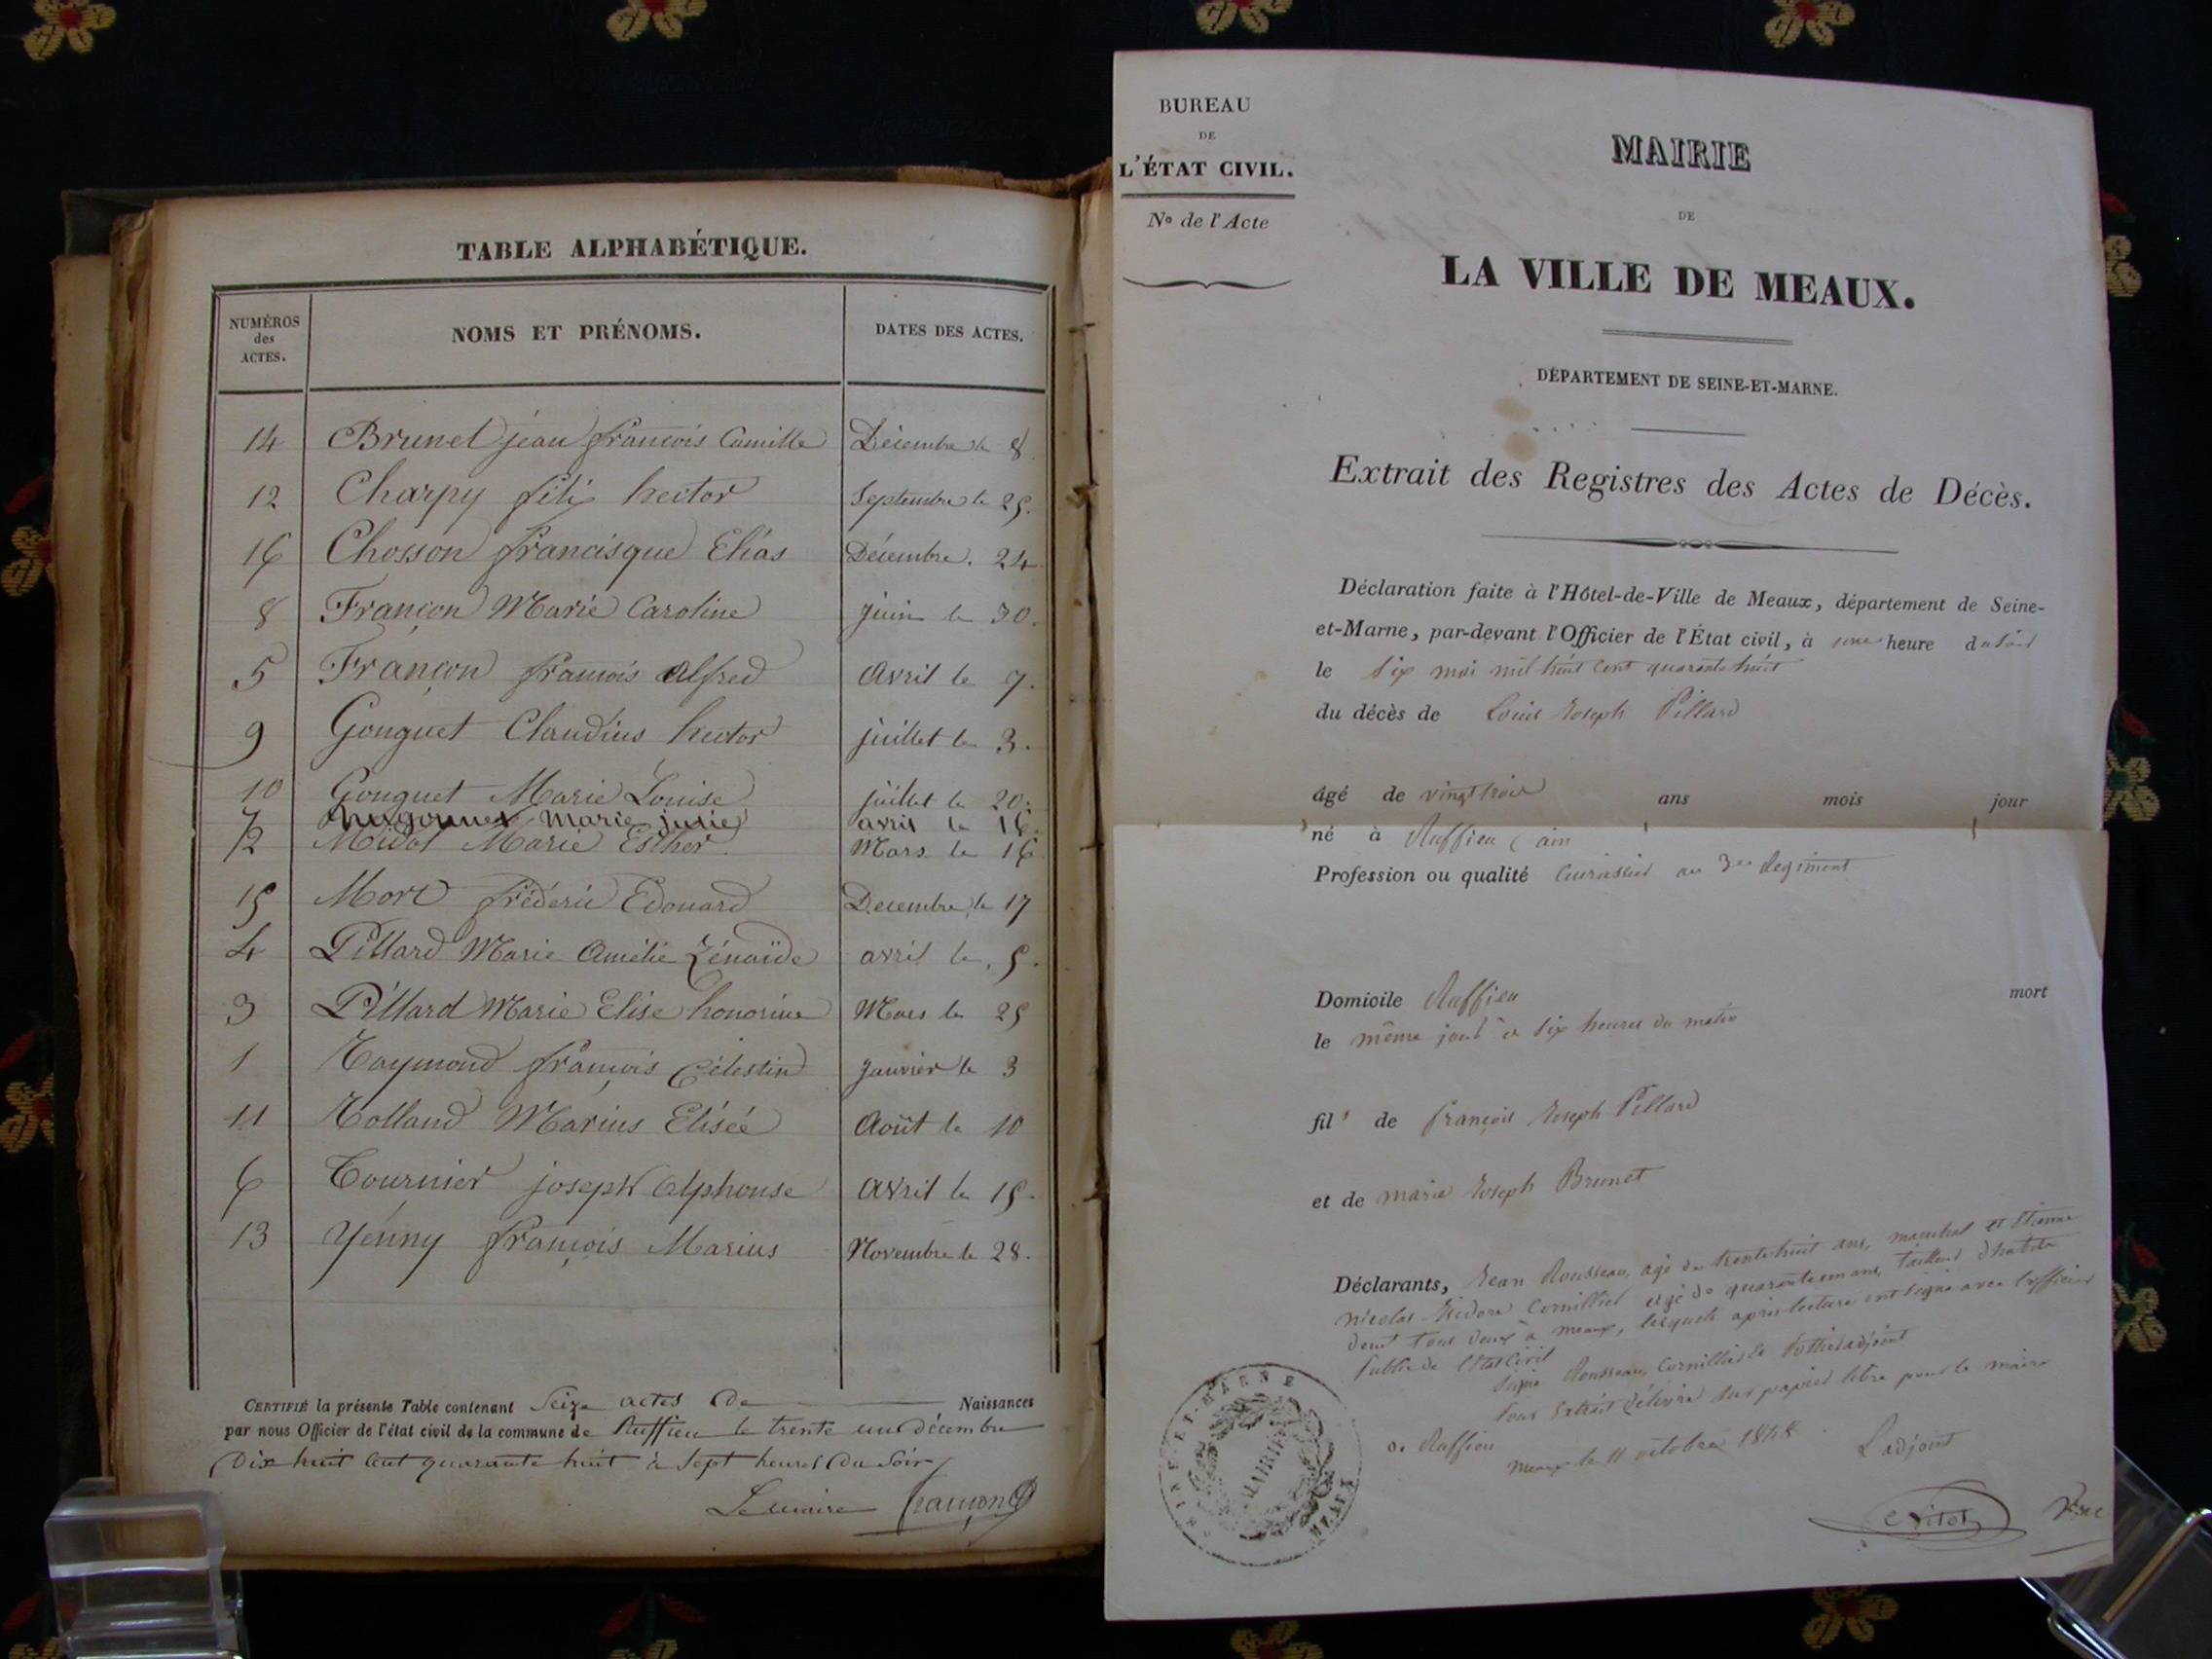 TABLE ALPHABÉTIQUE.
NUMÉROS des ACTES.
NOMS ET PRÉNOMS.
DATES DES ACTES.
14 Brunet jean françois Camille Décembre le 8.
12 Charpy félix hector Septembre le 25.
16 Chosson francisque Elias Décembre. 24
8 Françon Marie Caroline juin le 30.
5 Françon françois alfred Avril le 7.
9 Gonguet Claudius hector juillet le 3.
10 Gonguet Marie Louise juillet le 20.
7 hugonnet Marie julie avril le 16.
2 Midol Marie Esther. Mars le 16
15 Mort fréderic Edouard Decembre le 17
4 Pillard Marie Amélie Zénaïde avril le 5.
3 Pillard Marie Elise honorine Mars le 25
1 Raymond françois Célestin Janvier le 3
11 Rolland Marius Elisée Août le 10
6 Tournier joseph alphonse Avril le 15.
13 Yenny françois Marius Novembre le 28.
CERTIFIÉ la présente Table contenant Seize actes de Naissances
par nous Officier de l'état civil de la commune de Ruffieu le trente un décembre
Dix huit cent quarante huit à Sept heures du Soir
Le maire Françon
BUREAU
DE
L'ÉTAT CIVIL.
No de l'Acte
MAIRIE
DE
LA VILLE DE MEAUX.
DÉPARTEMENT DE SEINE-ET-MARNE.
Extrait des Registres des Actes de Décès.
Déclaration faite à l'Hôtel-de-Ville de Meaux, département de Seine-
et-Marne, par-devant l'Officier de l'État civil, à une heure du soir
le six mai mil huit cent quarante huit
du décès de Louis Joseph Pillard
âgé de vingt trois ans mois jour
né à Ruffieu (ain
Profession ou qualité Cuirassier au 3me Regiment
Domicile Ruffieu mort
le même jour à six heures du matin
fils de françois Joseph Pillard
et de marie Joseph Brunet
Déclarants, Jean Rousseau, agé de trente huit ans, marechal et Etienne
nicolas Isidore Cornillier agé de quarante un ans, tailleur d'habits
demt tous deux à meaux, lesquels après lecture ont signé avec l'officier
Public de l'Etat Civil
Signé Rousseau, Cornillier le Pothier adjoint
Pour Extrait délivré sur papier libre pour le maire
de Ruffieu
Meaux le 11 octobre 1848
L'adjoint
SEINE-ET-MARNE
MAIRIE
MEAUX